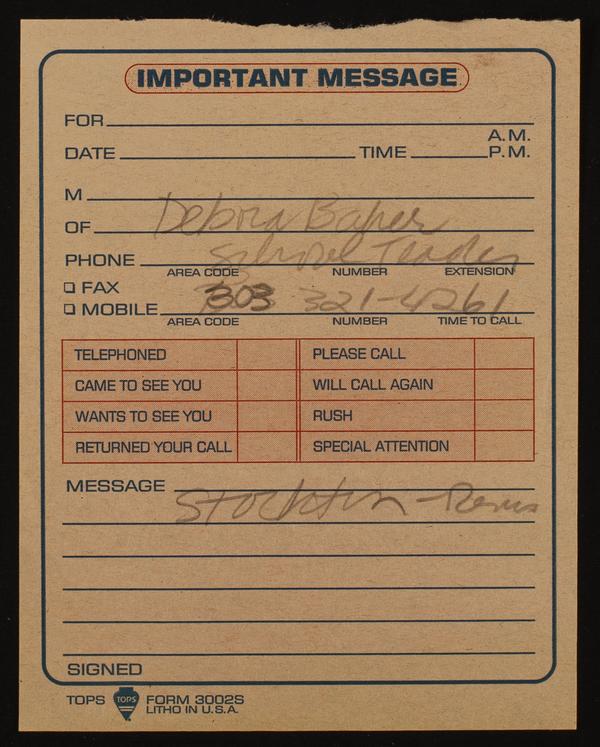 IMPORTANT MESSAGE
FOR
A.M.
DATE TIME P.M.
M
OF Debora Baker
PHONE School Teacher
AREA CODE NUMBER EXTENSION
FAX
MOBILE 303 321-4261
AREA CODE NUMBER TIME TO CALL
TELEPHONED PLEASE CALL
CAME TO SEE YOU WILL CALL AGAIN
WANTS TO SEE YOU RUSH
RETURNED YOUR CALL SPECIAL ATTENTION
MESSAGE
Stockton -
SIGNED
TOPS TOPS FORM 3002S
LITHO IN U.S.A.